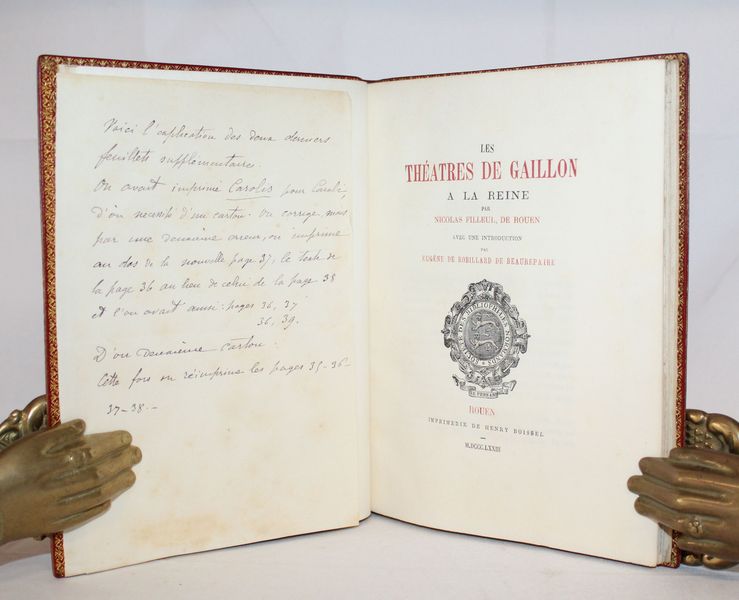 Voici l'explication des deux derniers
feuillets supplémentaires.
On avait imprimé Carolis pour Caroli,
d'où necésité d'un carton. On corrige, mais
par une deuxième erreur, on imprime
au dos de la nouvelle page 37, le texte de
la page 36 au lieu de celui de la page 38
et l'on avait ainsi: pages 36, 37
36, 39.
D'où deuxième carton.
Cette fois on réimprime les pages 35-36-
37-38.-
LES
THÉATRES DE GAILLON
A LA REINE
PAR
NICOLAS FILLEUL, DE ROUEN
AVEC UNE INTRODUCTION
PAR
EUGÈNE DE ROBILLARD DE BEAUREPAIRE
SOCIÉTÉ DES BIBLIOPHILES NORMANDS
ROUEN
IMPRIMERIE DE HENRY BOISSEL
M.DCCC.LXXIII